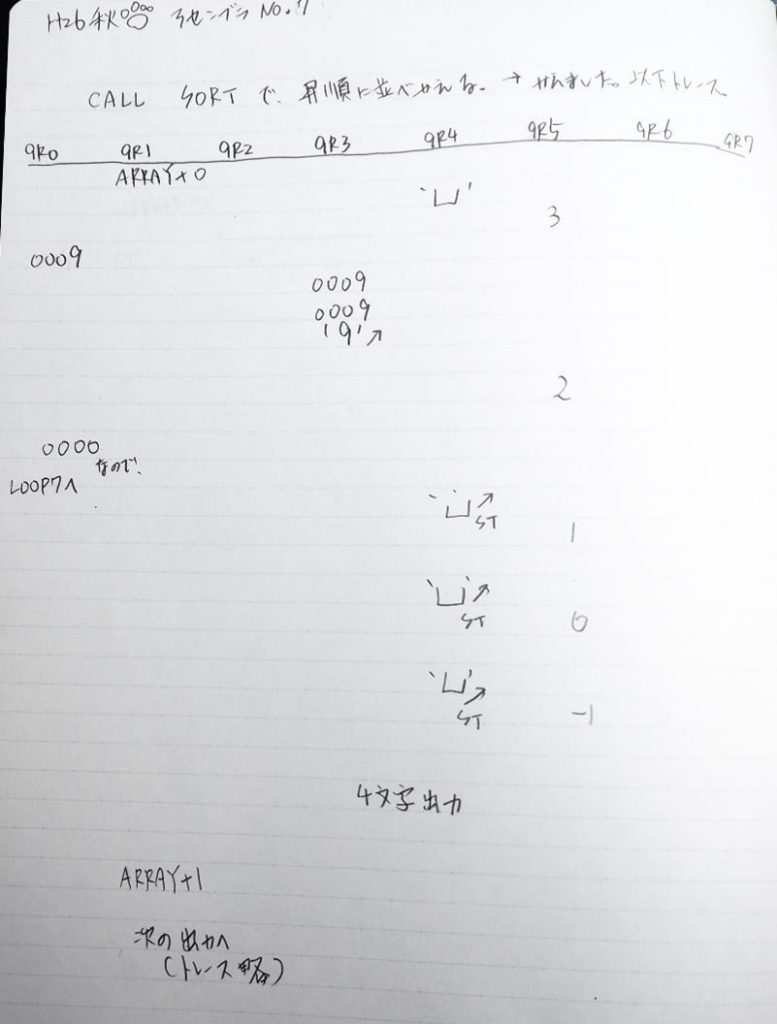 H26秋 アセンブラ No.7
CALL SORT で、昇順に並べかえる。→ かんました。以下トレース
GR0 GR1 GR2 GR3 GR4 GR5 GR6 GR7
ARRAY+0
'␣' 3
0009
0009
0009
'9'↗
2
0000
なので、
LOOP7へ
'␣'↗
ST 1
'␣'↗
ST 0
'␣'↗
ST -1
4文字出力
ARRAY+1
次の出力へ
(トレース略)